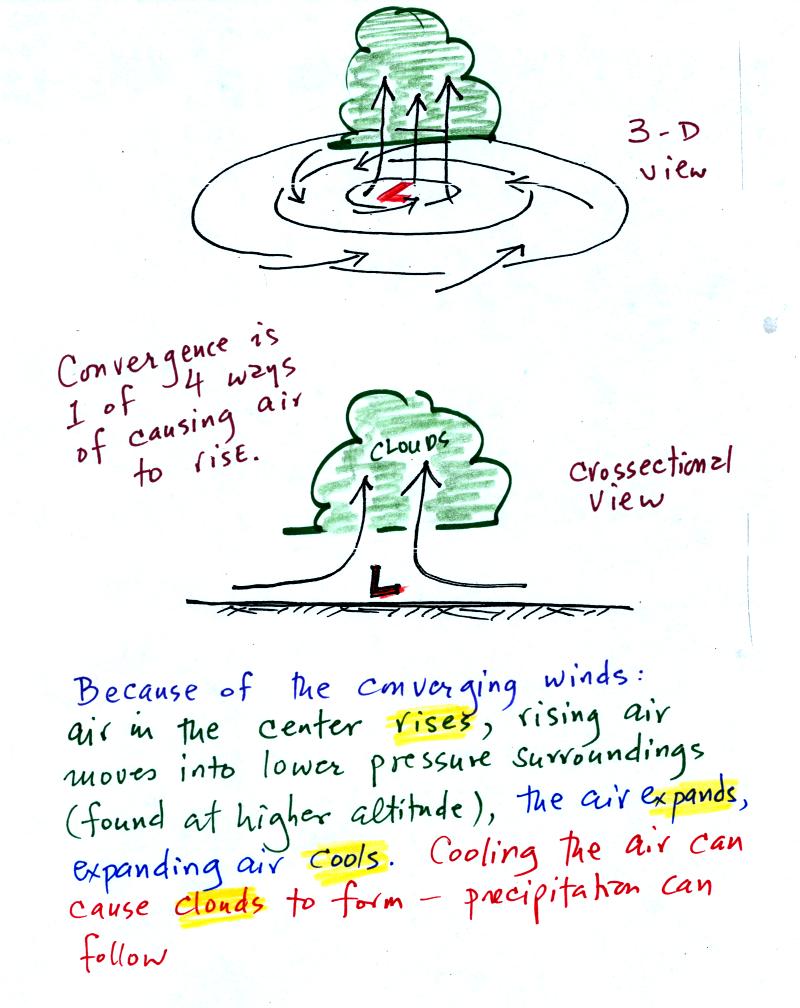 L
3-D
view
Convergence is
1 of 4 ways
of causing air
to rise.
CLOUDS
crossectional
view
L
Because of the converging winds:
air in the center rises, rising air
moves into lower pressure surroundings
(found at higher altitude), the air expands,
expanding air cools. Cooling the air can
cause clouds to form – precipitation can
follow